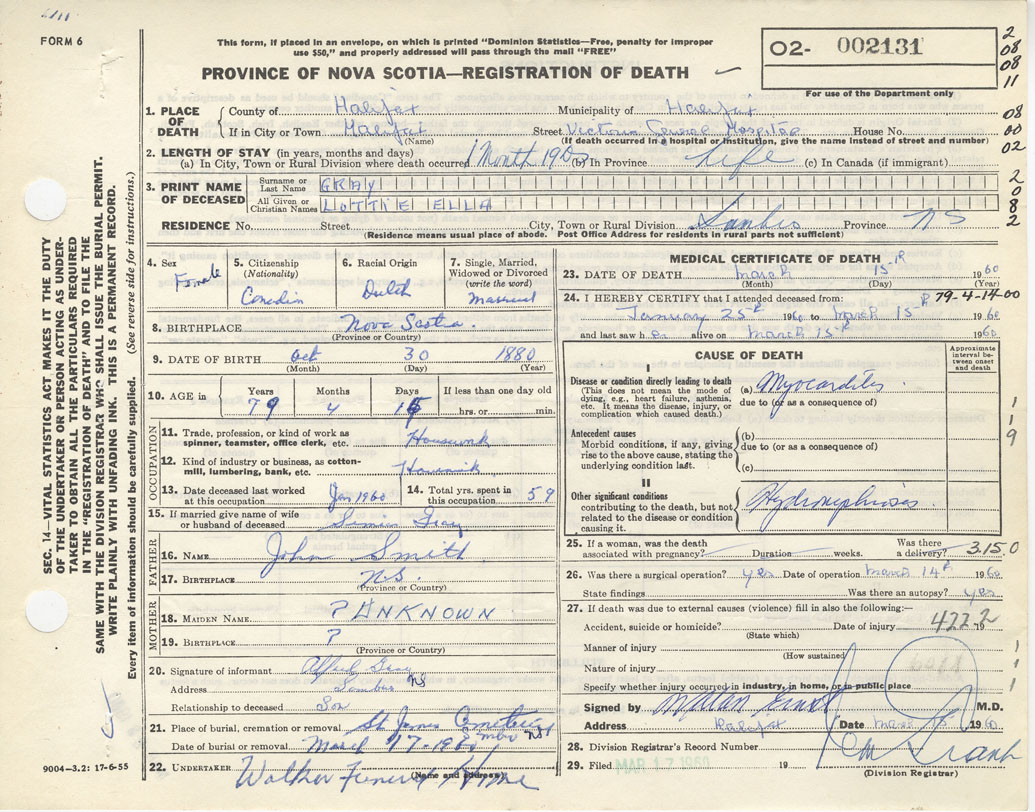 FORM 6
This form, if placed in an envelope, on which is printed "Dominion Statistics—Free, penalty for improper
use $50," and properly addressed will pass through the mail "FREE"
PROVINCE OF NOVA SCOTIA—REGISTRATION OF DEATH
02- 002131
For use of the Department only
2
08
08
11
08
00
02
2
0
8
2
1. PLACE OF DEATH
County of Halifax Municipality of Halifax
If in City or Town Halifax Street Victoria General Hospital House No.
(Name) (If death occurred in a hospital or institution, give the name instead of street and number)
2. LENGTH OF STAY (in years, months and days)
(a) In City, Town or Rural Division where death occurred 1 Month 1960 (b) In Province Life (c) In Canada (if immigrant)
3. PRINT NAME OF DECEASED
Surname or Last Name GRAY
All Given or Christian Names LOTTIE ELLA
RESIDENCE No. Street City, Town or Rural Division Sambro Province NS
(Residence means usual place of abode. Post Office Address for residents in rural parts not sufficient)
SEC. 14—VITAL STATISTICS ACT MAKES IT THE DUTY
OF THE UNDERTAKER OR PERSON ACTING AS UNDER-
TAKER TO OBTAIN ALL THE PARTICULARS REQUIRED
IN THE "REGISTRATION OF DEATH" AND TO FILE THE
SAME WITH THE DIVISION REGISTRAR WHO SHALL ISSUE THE BURIAL PERMIT.
WRITE PLAINLY WITH UNFADING INK. THIS IS A PERMANENT RECORD.
Every item of information should be carefully supplied. (See reverse side for instructions.)
4. Sex Female
5. Citizenship (Nationality) Canadian
6. Racial Origin Dutch
7. Single, Married, Widowed or Divorced (write the word) Married
8. BIRTHPLACE Nova Scotia.
(Province or Country)
9. DATE OF BIRTH Oct 30 1880
(Month) (Day) (Year)
10. AGE in Years Months Days If less than one day old
79 4 15 hrs. or min.
OCCUPATION
11. Trade, profession, or kind of work as
spinner, teamster, office clerk, etc. Housework
12. Kind of industry or business, as cotton-
mill, lumbering, bank, etc. Housework
13. Date deceased last worked at this occupation Jan 1960
14. Total yrs. spent in this occupation 59
15. If married give name of wife
or husband of deceased Gray
FATHER
16. NAME John Smith
17. BIRTHPLACE N.S.
(Province or Country)
MOTHER
18. MAIDEN NAME ? UNKNOWN
19. BIRTHPLACE ?
(Province or Country)
20. Signature of informant Alfred Gray
Address Sambro NS
Relationship to deceased Son
21. Place of burial, cremation or removal St James Cemetery
Sambro NS
Date of burial or removal March 17-1960
22. UNDERTAKER Walker Funeral Home
(Name and address)
9004-3.2: 17-6-55
MEDICAL CERTIFICATE OF DEATH
23. DATE OF DEATH March 15th 1960
(Month) (Day) (Year)
24. I HEREBY CERTIFY that I attended deceased from: P 79-4-14-00
January 25th 1960 to March 15th 1960
and last saw her alive on March 15th 1960
CAUSE OF DEATH
Approximate interval between onset and death
I
Disease or condition directly leading to death
(This does not mean the mode of
dying, e.g., heart failure, asthenia,
etc. It means the disease, injury, or
complication which caused death.)
(a) Myocarditis
due to (or as a consequence of)
Antecedent causes
Morbid conditions, if any, giving
rise to the above cause, stating the
underlying condition last.
(b)
due to (or as a consequence of)
(c)
II
Other significant conditions
contributing to the death, but not
related to the disease or condition
causing it.
Hydronephrosis
1
1
9
25. If a woman, was the death associated with pregnancy? Duration weeks. Was there a delivery? 3.15.0
26. Was there a surgical operation? yes Date of operation March 14th 1960
State findings Was there an autopsy? yes
27. If death was due to external causes (violence) fill in also the following:—
Accident, suicide or homicide? Date of injury 19
4222
(State which)
Manner of injury
(How sustained)
Nature of injury
Specify whether injury occurred in industry, in home, or in public place
1
1
1
Signed by M.D.
Address Halifax Date March 1960
28. Division Registrar's Record Number
29. Filed MAR 17 1960 19
(Division Registrar)